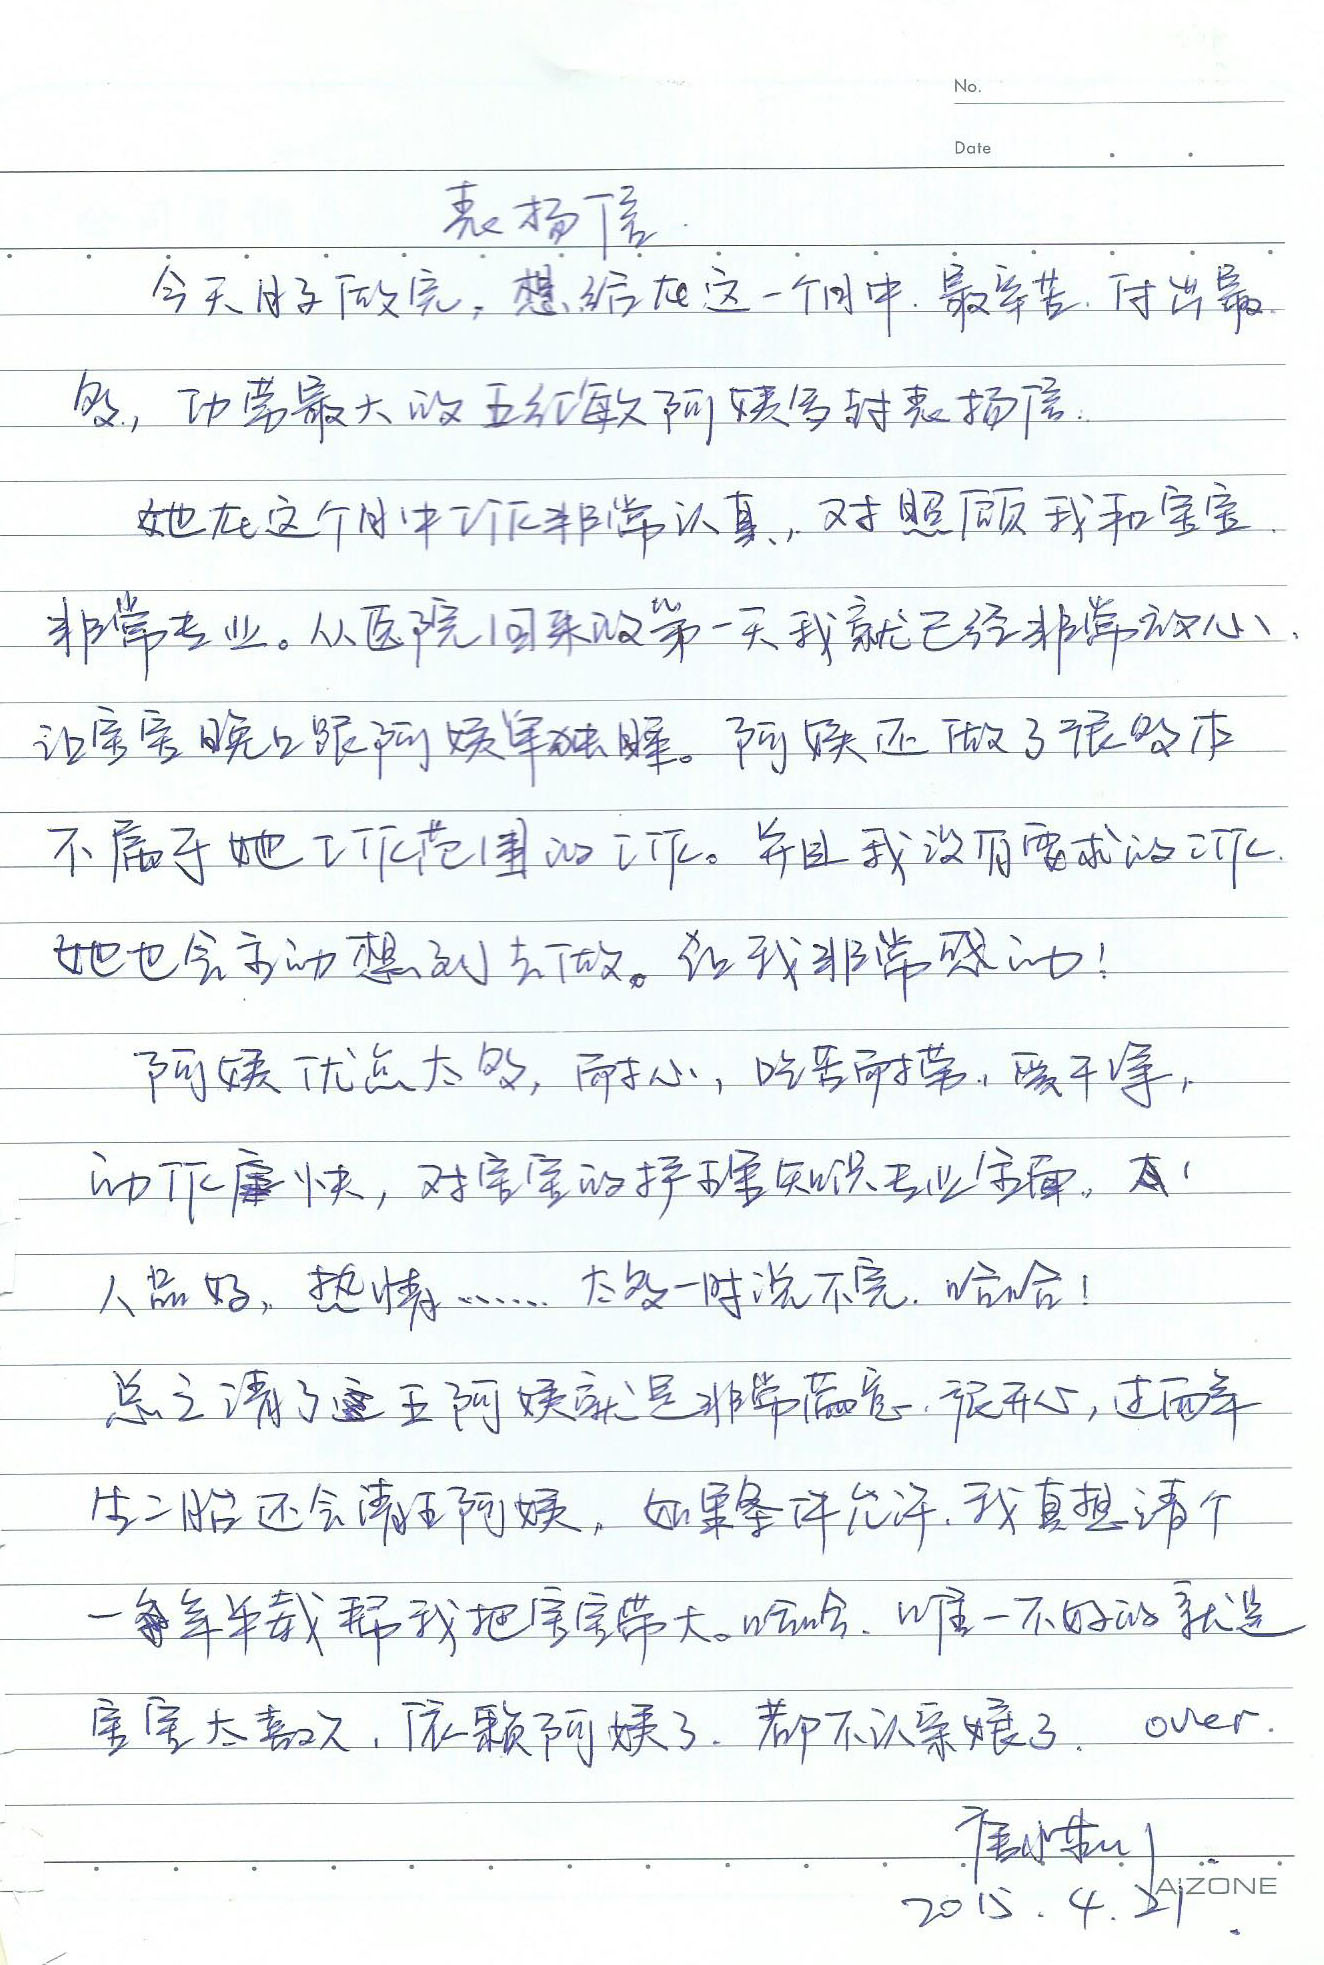 No.
Date
表扬信.
今天月子做完,想给在这一个月中.最辛苦.付出最
多,功劳最大的王红敏阿姨写封表扬信.
她在这个月中工作非常认真,对照顾我和宝宝
非常专业。从医院回来的第一天我就已经非常放心、
让宝宝晚上跟阿姨单独睡。阿姨还做了很多本
不属于她工作范围的工作。并且我没有要求的工作.
她也会主动想到去做。给我非常感动!
阿姨优点太多,耐心,吃苦耐劳,爱干净,
动作麻快,对宝宝的护理知识专业全面,
人品好,热情……太多一时说不完.哈哈!
总之请了王阿姨就是非常满意.很开心,过两年
生二胎还会请王阿姨,如果条件允许.我真想请个
一年半载帮我把宝宝带大。哈哈.唯一不好的就是
宝宝太喜欢.依赖阿姨了.都不认亲娘了. over.
2015.4.21
AIZONE